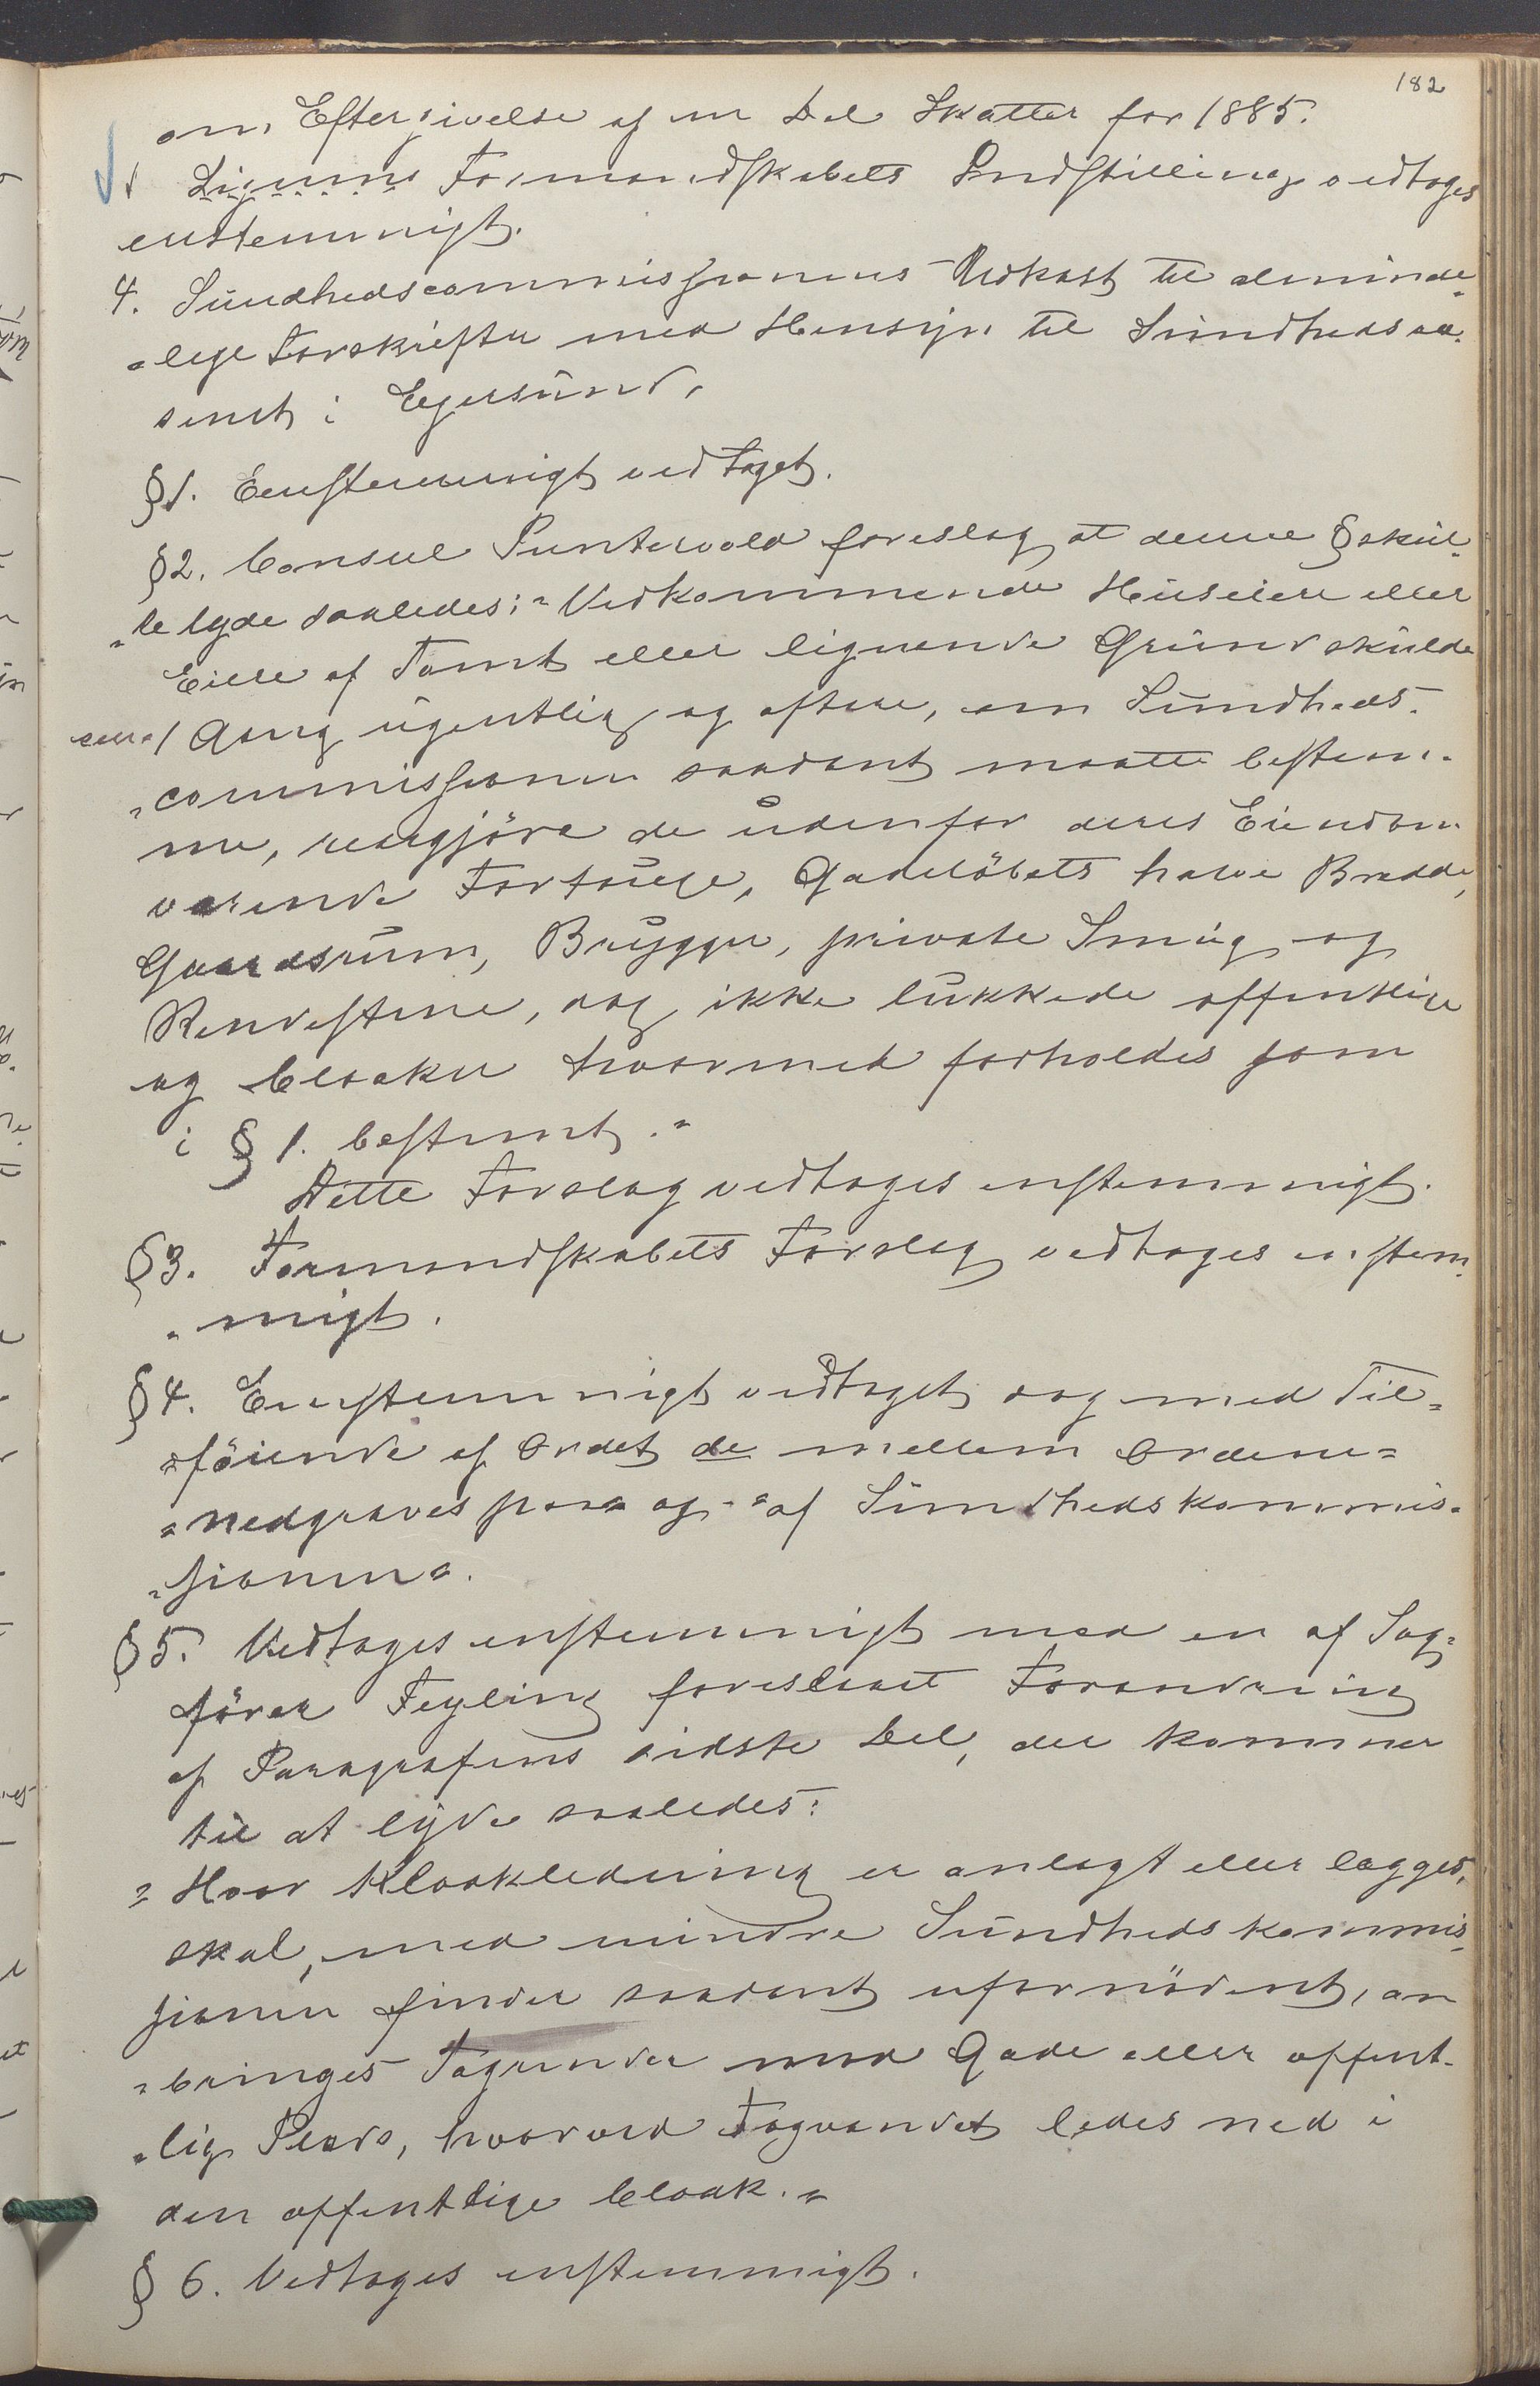 182
om Eftergivelse af en Del Skatter for 1885.
Formandskabets Indstilling vedtages
enstemmigt.
4. Sundhedscommissionens Udkast til alminde„
„lige Forskrifter med Hensyn til Sundhedsvæ„
senet i Egersund.
§1. Eenstemmigt vedtaget.
§2. Consul Puntervold foreslog at denne § skul„
„le lyde saaledes: „Vedkommende Huseiere eller
Eiere af Tomt eller lignende Grund skulde
een 1 Gang ugentlig og oftere, om Sundheds„
„commissionen saadant maatte bestem„
me, reengjöre de udenfor deres Eiendom
værende Fortouge, Gadelöbets halve Bredde,
Gaardsrum, Brygger, private Smug og
Rendestene, dog ikke lukkede offentlige
og Cloaker hvormed forholdes som
i § 1. bestemt.„
Dette Forslag vedtages enstemmigt.
§3. Formandskabets Forslag vedtages enstem„
„migt.
§4. Eenstemmigt vedtaget dog med Til„
„föiende af Ordet de mellem Ordene „
„nedgraves paa og „af Sundhedskommis„
„sionen„.
§5. Vedtages enstemmigt med en af Sag„
förer Feyling foreslaaet Forandring
af Paragrafens sidste Del, der kommer
til at lyde saaledes:
„Hvor Kloakledning er anlagt eller lægges,
skal, med mindre Sundhedskommis„
sionen finder saadant ufornödent, an
„bringes Tagrender mod Gade eller offent„
„lig Plads, hvorved Tagvandet ledes ned i
den offentlige Cloak.„
§ 6. Vedtages enstemmigt.